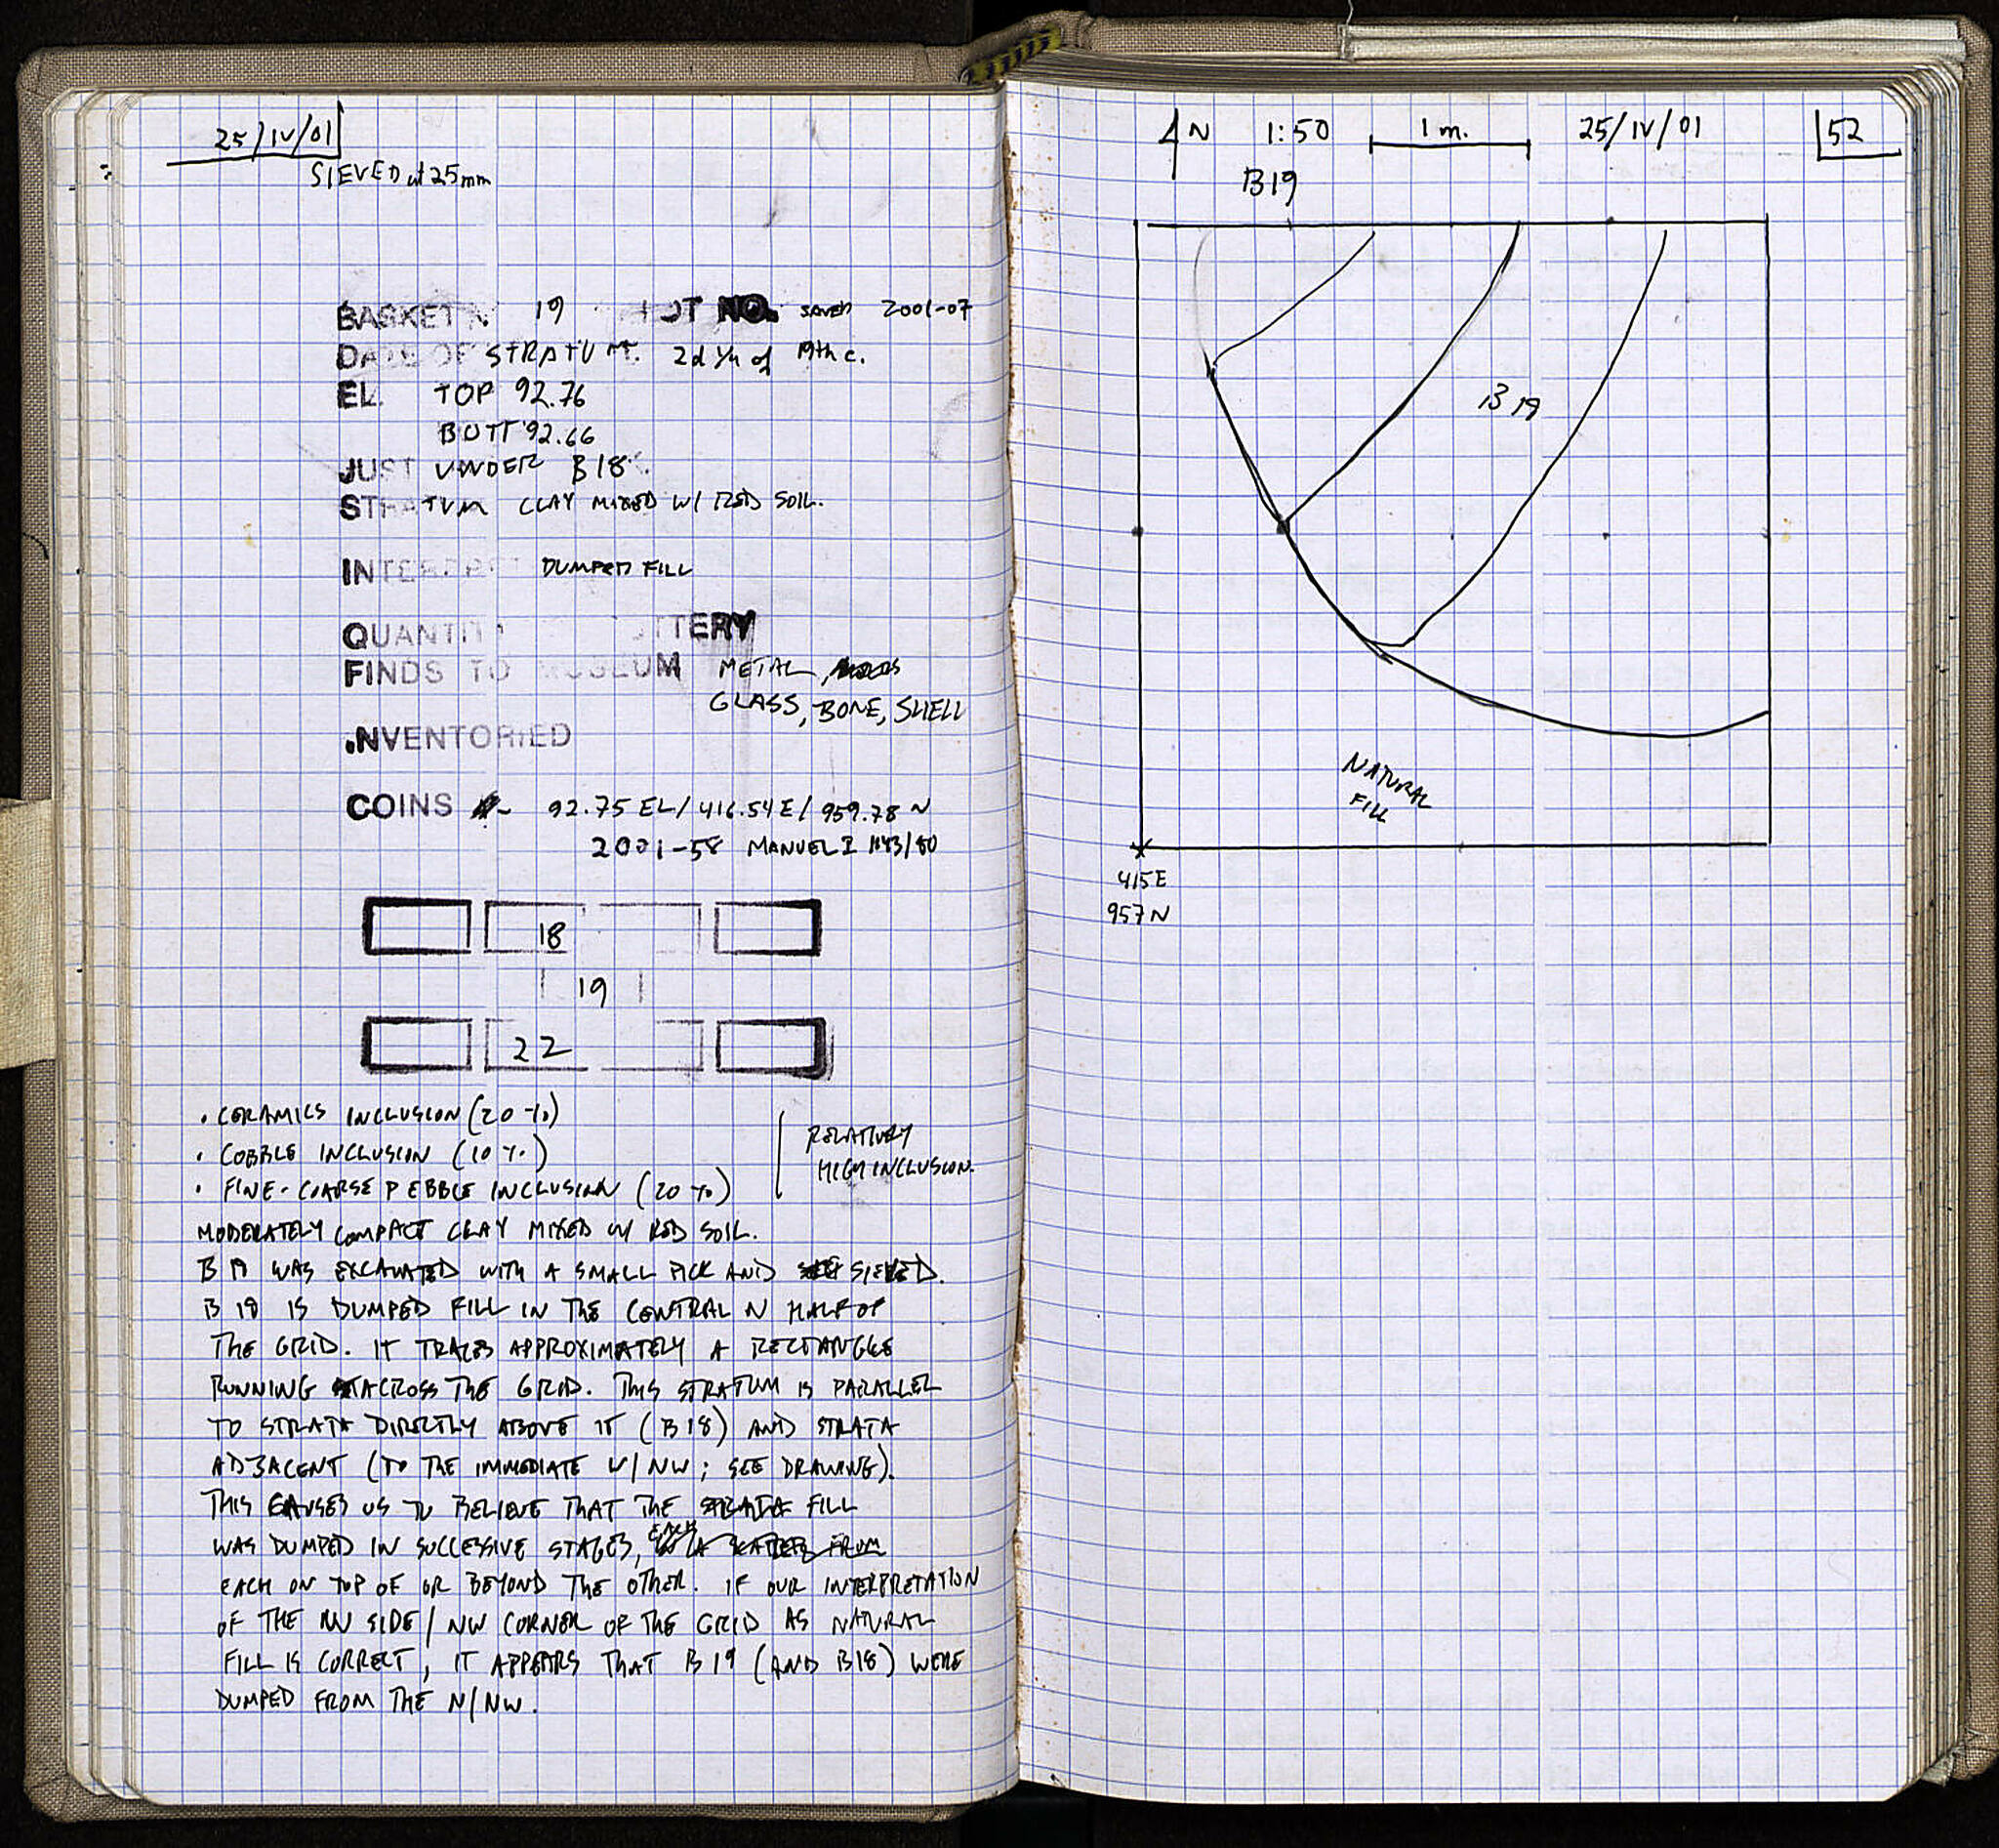 25/IV/01
SIEVED at 25mm
BASKET N 19 LOT NO. SAVED 2001-07
DATE OF STRATUM. 2d 1/4 of 19th c.
EL. TOP 92.76
BOTT 92.66
JUST UNDER B18
STRATUM CLAY MIXED W/ RED SOIL.
INTERPRET DUMPED FILL
QUANTIT OTTERY
FINDS TO MUSEUM METAL,
GLASS, BONE, SHELL
INVENTORIED
COINS - 92.75 EL/416.54E/959.78 N
2001-58 MANUEL I 1143/80
18
19
22
• CERAMICS INCLUSION (20%)
• COBBLE INCLUSION (10%)
• FINE-COARSE PEBBLE INCLUSION (20%)
RELATIVELY
HIGH INCLUSION.
MODERATELY COMPACT CLAY MIXED W/ RED SOIL.
B 19 WAS EXCAVATED WITH A SMALL PICK AND SIEVED.
B 19 IS DUMPED FILL IN THE CENTRAL N HALF OF
THE GRID. IT TRACES APPROXIMATELY A RECTANGLE
RUNNING ACROSS THE GRID. THIS STRATUM IS PARALLEL
TO STRATA DIRECTLY ABOVE IT (B18) AND STRATA
ADJACENT (TO THE IMMEDIATE W/NW; SEE DRAWING).
THIS CAUSES US TO BELIEVE THAT THE STRATA FILL
WAS DUMPED IN SUCCESSIVE STAGES, EACH
EACH ON TOP OF OR BEYOND THE OTHER. IF OUR INTERPRETATION
OF THE NW SIDE/NW CORNER OF THE GRID AS NATURAL
FILL IS CORRECT, IT APPEARS THAT B19 (AND B18) WERE
DUMPED FROM THE N/NW.
N 1:50 1 m. 25/IV/01 52
B19
B 19
NATURAL
FILL
415E
957N